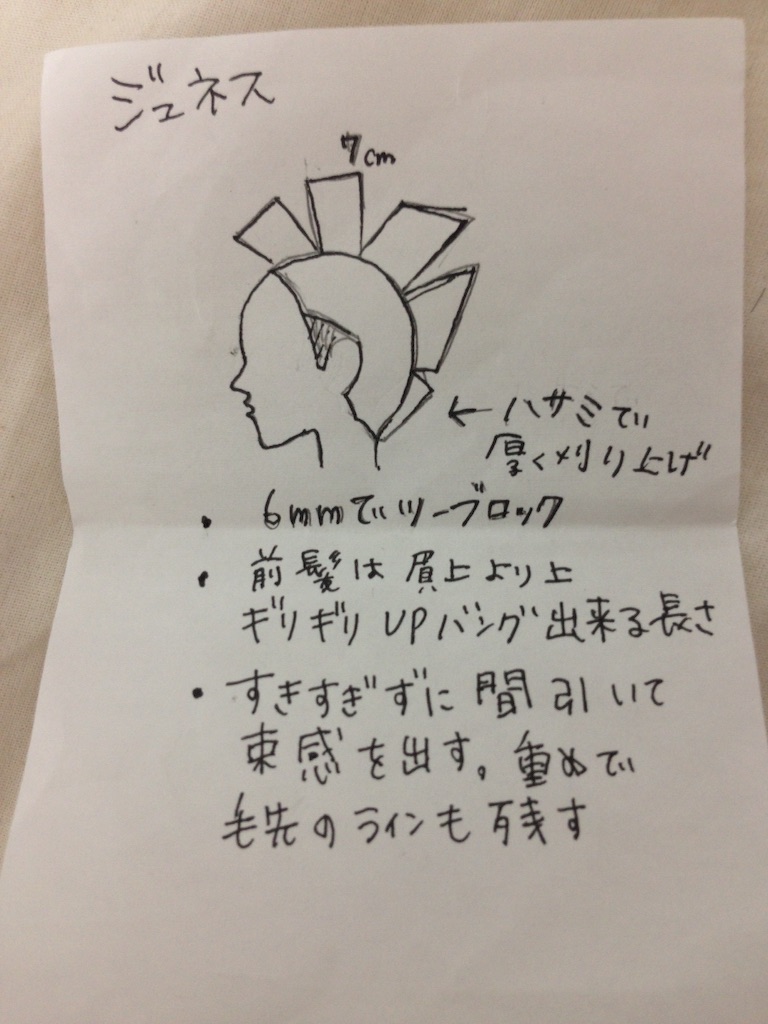 ジュネス
7cm
← ハサミで
厚く刈り上げ
・6mmでツーブロック
・前髪は眉上より上
ギリギリUPバング出来る長さ
・すきすぎずに間引いて
束感を出す。重めで
毛先のラインも残す